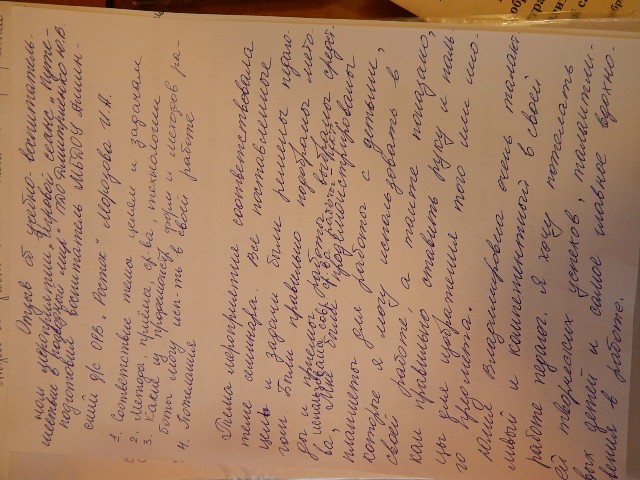 Отзыв об учебно-воспитатель-
ном мероприятии "Игровой сеанс "Путе-
шествие в подводный мир" ПДО Дмитриенко Ю.В.
подготовил воспитатель МБДОУ
сший д/с ОРВ "Росток" Морозова И.А.
1. Соответствие темы целям и задачам
2. Методы, приёмы, ср-ва, технологии
3. Какие из предложенных форм и методов ра-
боты могу исп-ть в своей работе
4. Пожелания
Тема мероприятие соответствовала
теме семинара. Все поставленные
цели и задачи были решены педаго-
гом. Были правильно подобраны мето-
ды и приемы работы, выбраны средст-
ва, использованы
Мне были продемонстрированы
планшеты для работы с детьми,
которые я могу использовать в
своей работе, а также показано,
как правильно ставить руку и паль-
цы для изображения того или ино-
го предмета.
Юлия Владимировна очень талант-
ливый и компетентный в своей
работе педагог. Я хочу пожелать
ей творческих успехов, талантли-
вых детей и самое главное вдохно-
вления в работе.